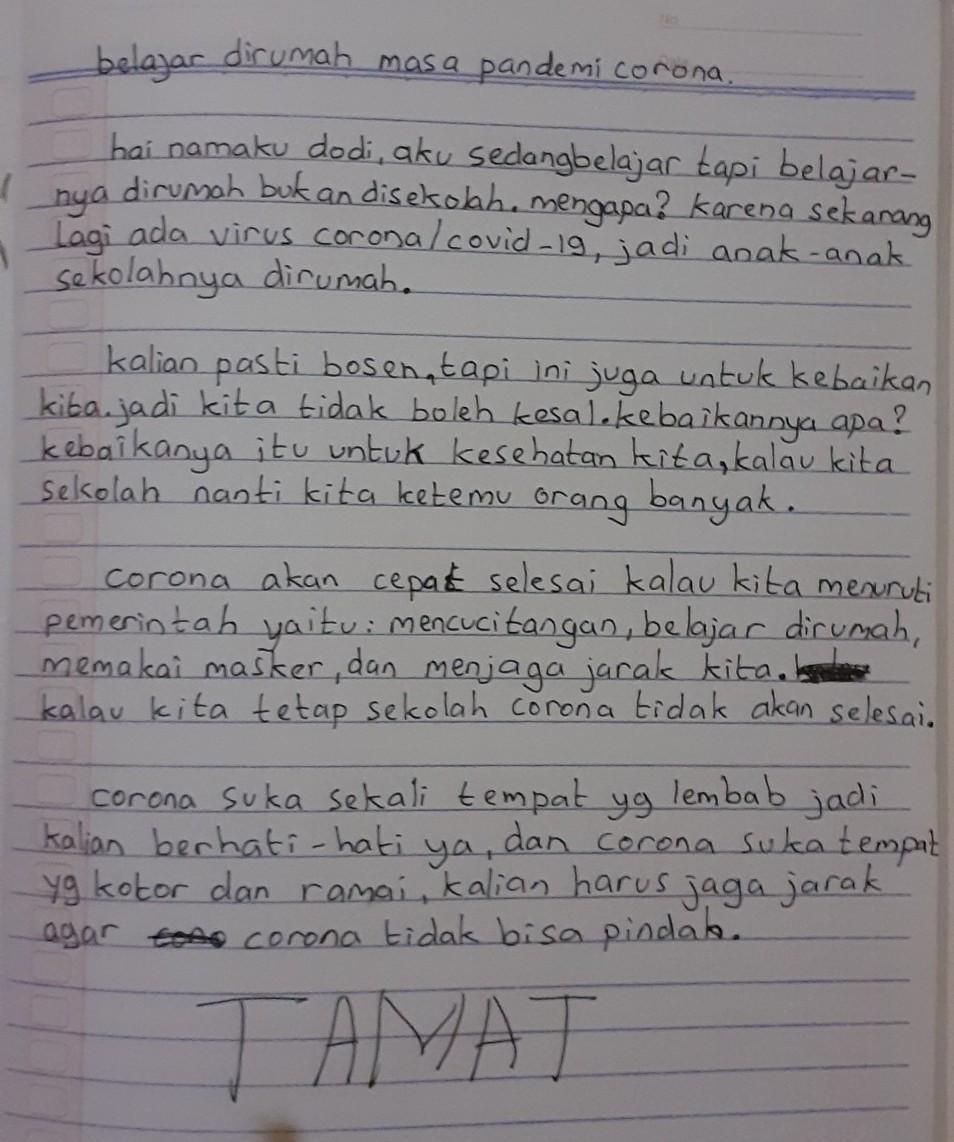 belajar dirumah masa pandemi corona.
hai namaku dodi, aku sedangbelajar tapi belajar-
nya dirumah bukan disekolah. mengapa? karena sekarang
lagi ada virus corona/covid-19, jadi anak-anak
sekolahnya dirumah.
kalian pasti bosen, tapi ini juga untuk kebaikan
kita. jadi kita tidak boleh kesal. kebaikannya apa?
kebaikanya itu untuk kesehatan kita, kalau kita
sekolah nanti kita ketemu orang banyak.
corona akan cepat selesai kalau kita menuruti
pemerintah yaitu: mencucitangan, belajar dirumah,
memakai masker, dan menjaga jarak kita.
kalau kita tetap sekolah corona tidak akan selesai.
corona suka sekali tempat yg lembab jadi
kalian berhati-hati ya, dan corona suka tempat
yg kotor dan ramai, kalian harus jaga jarak
agar corona tidak bisa pindah.
TAMAT